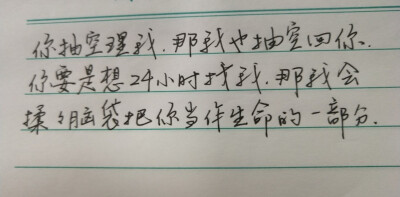 你抽空理我.那我也抽空回你.
你要是想24小时找我.那我会
揉々脑袋把你当作生命的一部分.